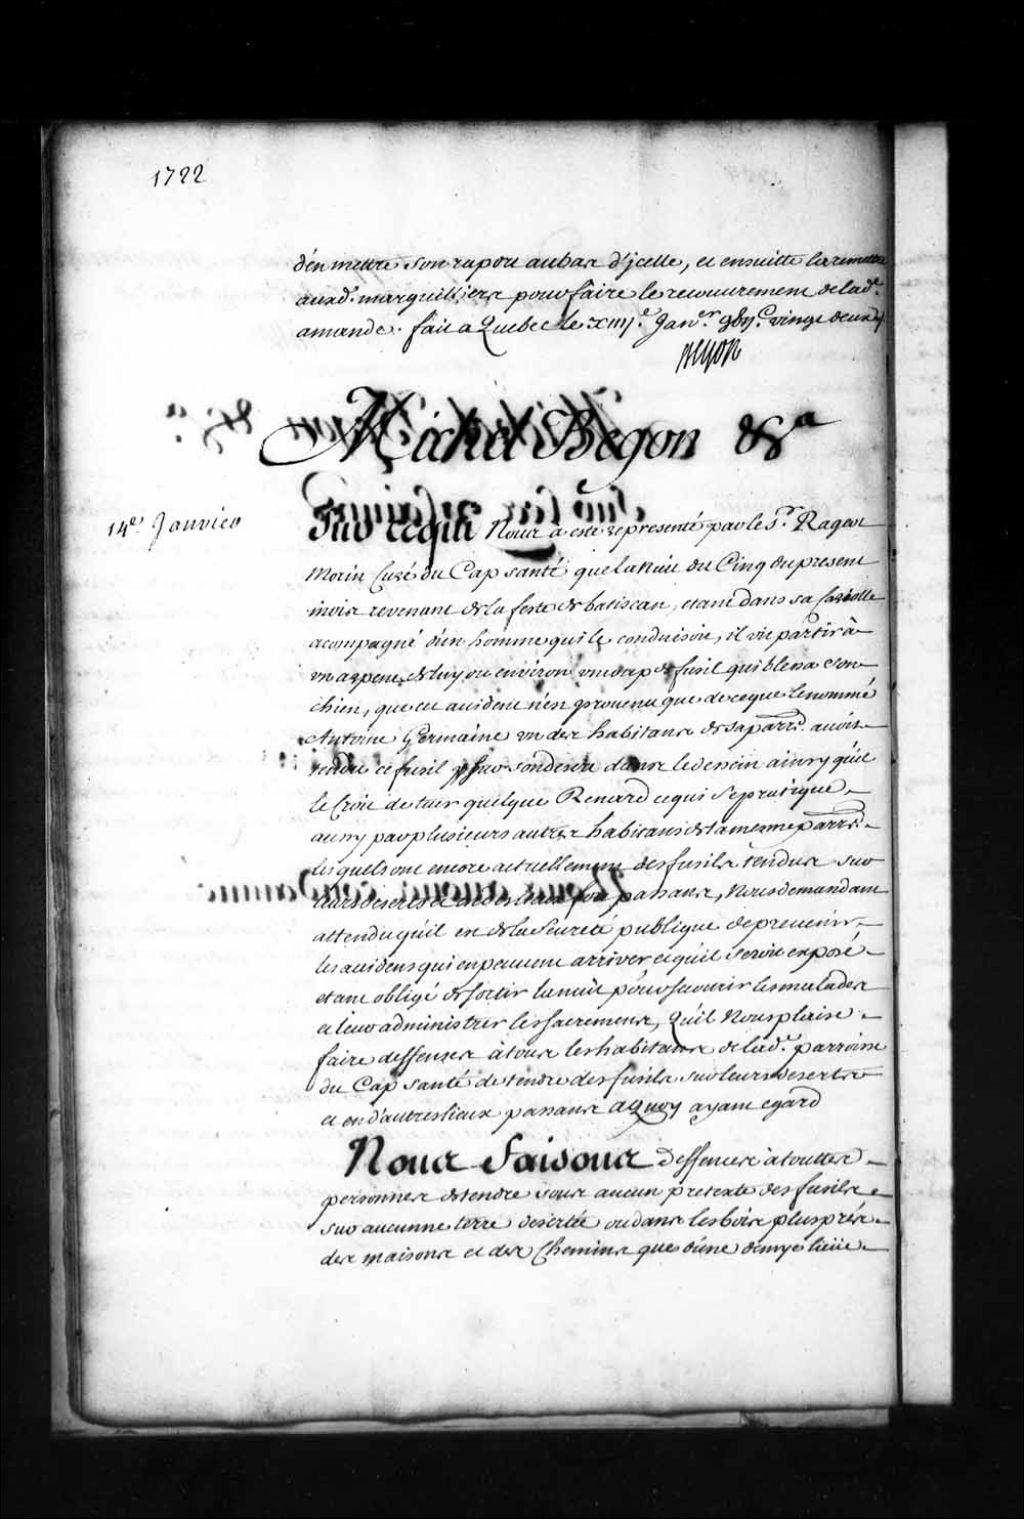 1722
d'en mettre son raport aubas d'jcelle, et ensuitte la remettre
auxd. marguilliers pour faire le recouurement de lad.e
amande. fait a Quebec le xiiij.e Jan.er vingt deux
Begon
Michel Begon &a
14.e Januier
Sur cequi Nous a esté representé par le S.r Rageot
Morin Curé du Cap santé que la Nuit du Cinq du present
mois revenant de la feste de batiscan, etant dans sa Cariolle
acompagné d'un homme qui le conduisoit, il vit partir à
vn arpent de luy ou environ vn coup de fusil qui blessa son
chien, que cet accident n'est prouenu que de ceque le nommé
Antoine Germaine vn des habitans de sa parr.e auoit
tendu ce fusil sur son desert dans le dessein ainsy qu'il
le Croit de tuer quelque Renard cequi se pratique
aussy par plusieurs autres habitans de la mesme parr.e
lesquels ont encore actuellement des fusils tendus sur
leurs deserts et passans, Nous demandant
attendu qu'il est de la Seureté publique de preuenir
les accidens qui en peuuent arriver et qu'il seroit exposé
etant obligé de sortir la nuit pour secourir les malades
et leur administrer les sacremens, qu'il Nous plaise
faire deffenses à tous les habitans de lad.e parroisse
du Cap Santé de tendre des fusils sur leurs deserts
et en d'autres lieux passans aQuoy ayant egard
Nous faisons deffenses à touttes
personnes de tendre sous aucun pretexte des fusils
sur aucunne terre desertée ou dans les bois plus prés
des maisons et des Chemins que d'une demye lieüe